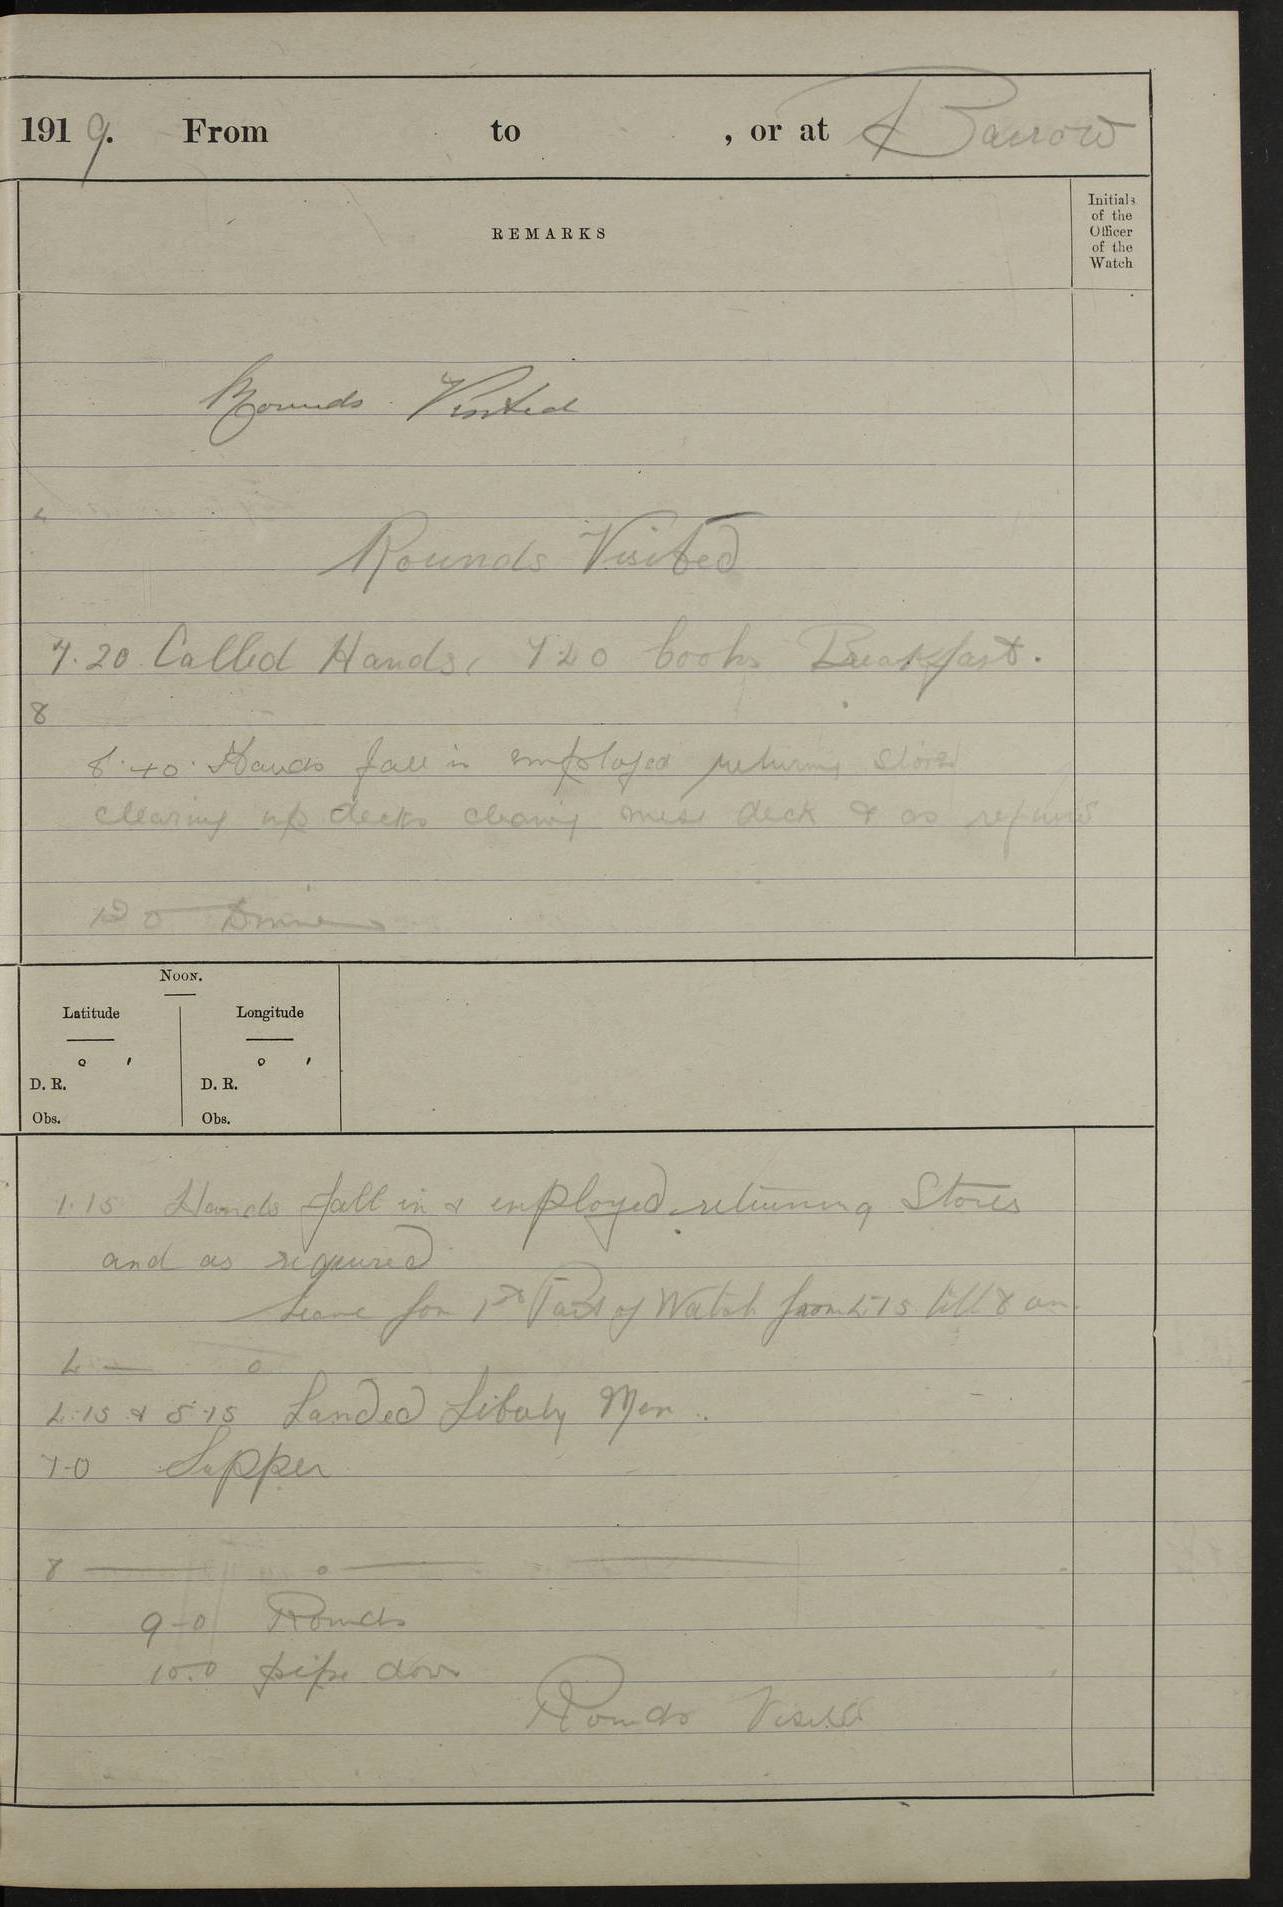 1919. From to , or at Barrow
REMARKS
Initials
of the
Officer
of the
Watch
Rounds Visited
4
Rounds Visited
7.20 Called Hands, 7 40 Cooks Breakfast.
8
8.40. Hands fall in employed returning stores
clearing up decks cleaning mess deck & as
12 0 Dinner
NOON.
Latitude
Longitude
° ′ ° ′
D. R. D. R.
Obs. Obs.
1.15 Hands fall in & employed returning Stores
and as required
Leave for 1st Part of Watch from 4.15 till 8 am.
4 — 0
4.15 & 5.15 Landed Libaty Men
7-0 Supper
8 — 0 —
9-0 Rounds
10.0 pipe down
Rounds Visited